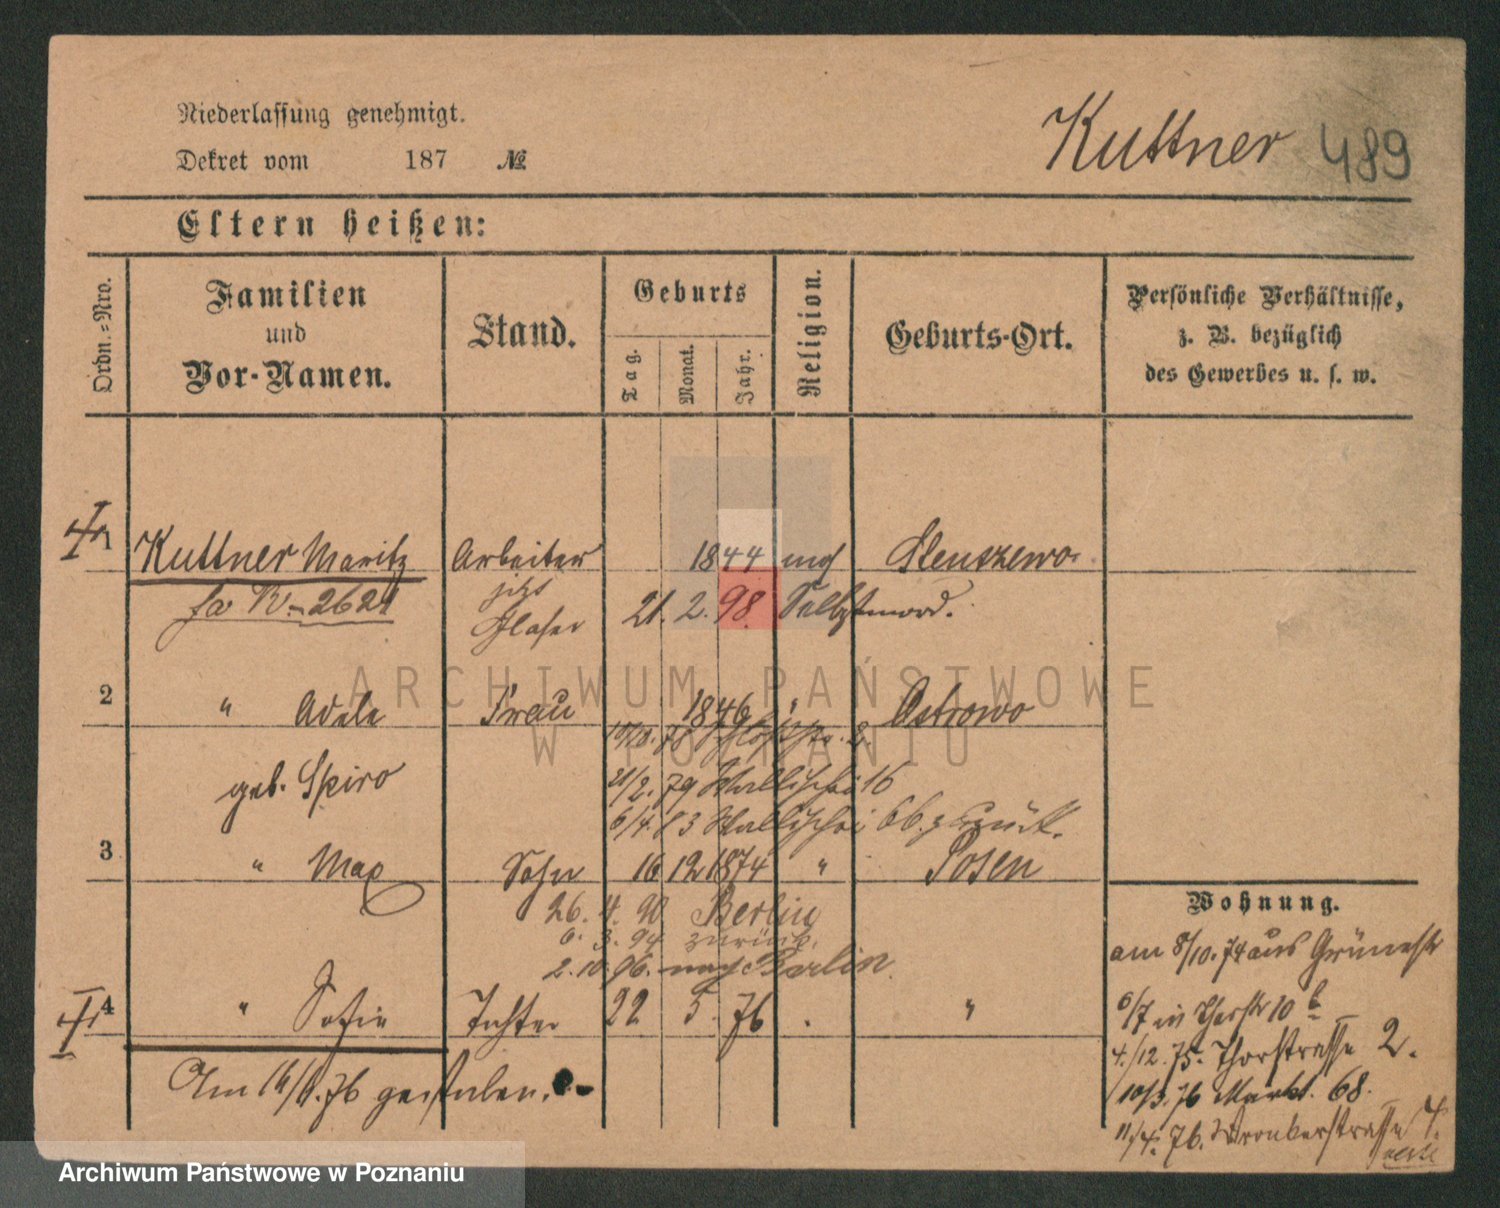 Niederlassung genehmigt.
Dekret vom 187 №
Kuttner 489
Eltern heißen:
Ordn.=Nro.
Familien und Vor-Namen.
Stand.
Geburts
Tag.
Monat.
Jahr.
Religion.
Geburts-Ort.
Persönliche Verhältnisse,
z. B. bezüglich
des Gewerbes u. s. w.
1 Kuttner Moritz Arbeiter 1844 Stenszewo
K.-2621 jetzt
Glaser 21. 2. 98. Selbstmord.
2 " Adele Frau 1846 " Ostrowo
geb. Spiro
21/2. 79 Wallischei 16
6/4. 83 Wallischei 6b. zurück.
3 " Max Sohn 16 12 1874 " Posen
26. 4. 90 Berlin
6. 3. 94 zurück.
2. 10. 96. nach Berlin
4 " Sofie Tochter 22 5. 76 "
Am 14/6. 76 gestorben.
Wohnung.
am 8/10. 74 aus Grünestr
6/7 in 10
4./12. 75. Thorstrasse 2.
10/3. 76 Markt. 68.
11/4. 76. Wronkerstrasse 4.
ARCHIWUM PAŃSTWOWE
W POZNANIU
Archiwum Państwowe w Poznaniu